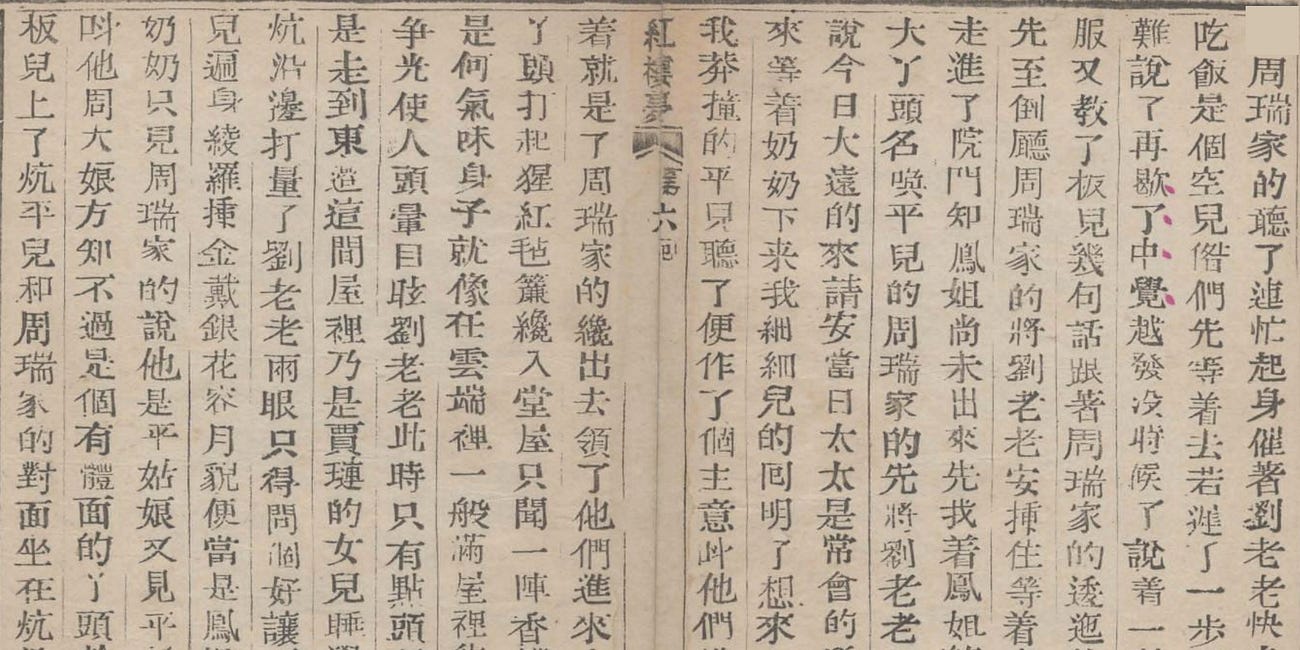 周瑞家的聽了連忙起身催著劉老老快
吃飯是個空兒偺們先等着去若遲了一步
難說了再歇了中覺越發没時候了說着一
服又教了板兒幾句話跟著周瑞家的逶迤
先至倒廳周瑞家的將劉老老安揷住等着
走進了院門知鳳姐尚未出來先找着鳳姐
大丫頭名喚平兒的周瑞家的先將劉老老
說今日大遠的來請安當日太太是常會的
來等着奶奶下来我細細兒的囘明了想來
我莽撞的平兒聽了便作了個主意呌他們
紅樓夢 第六囘
着就是了周瑞家的纔出去領了他們進來
丫頭打起猩紅毡簾纔入堂屋只聞一陣香
是何氣味身子就像在雲端裡一般滿屋裡
争光使人頭暈目眩劉老老此時只有點頭
是走到東邉這間屋裡乃是賈璉的女兒睡
炕沿邊打量了劉老老兩眼只得問個好讓
兒遍身綾羅揷金戴銀花容月貌便當是鳳
奶奶只見周瑞家的說他是平姑娘又見平
呌他周大娘方知不過是個有體面的丫頭
板兒上了炕平兒和周瑞家的對面坐在炕